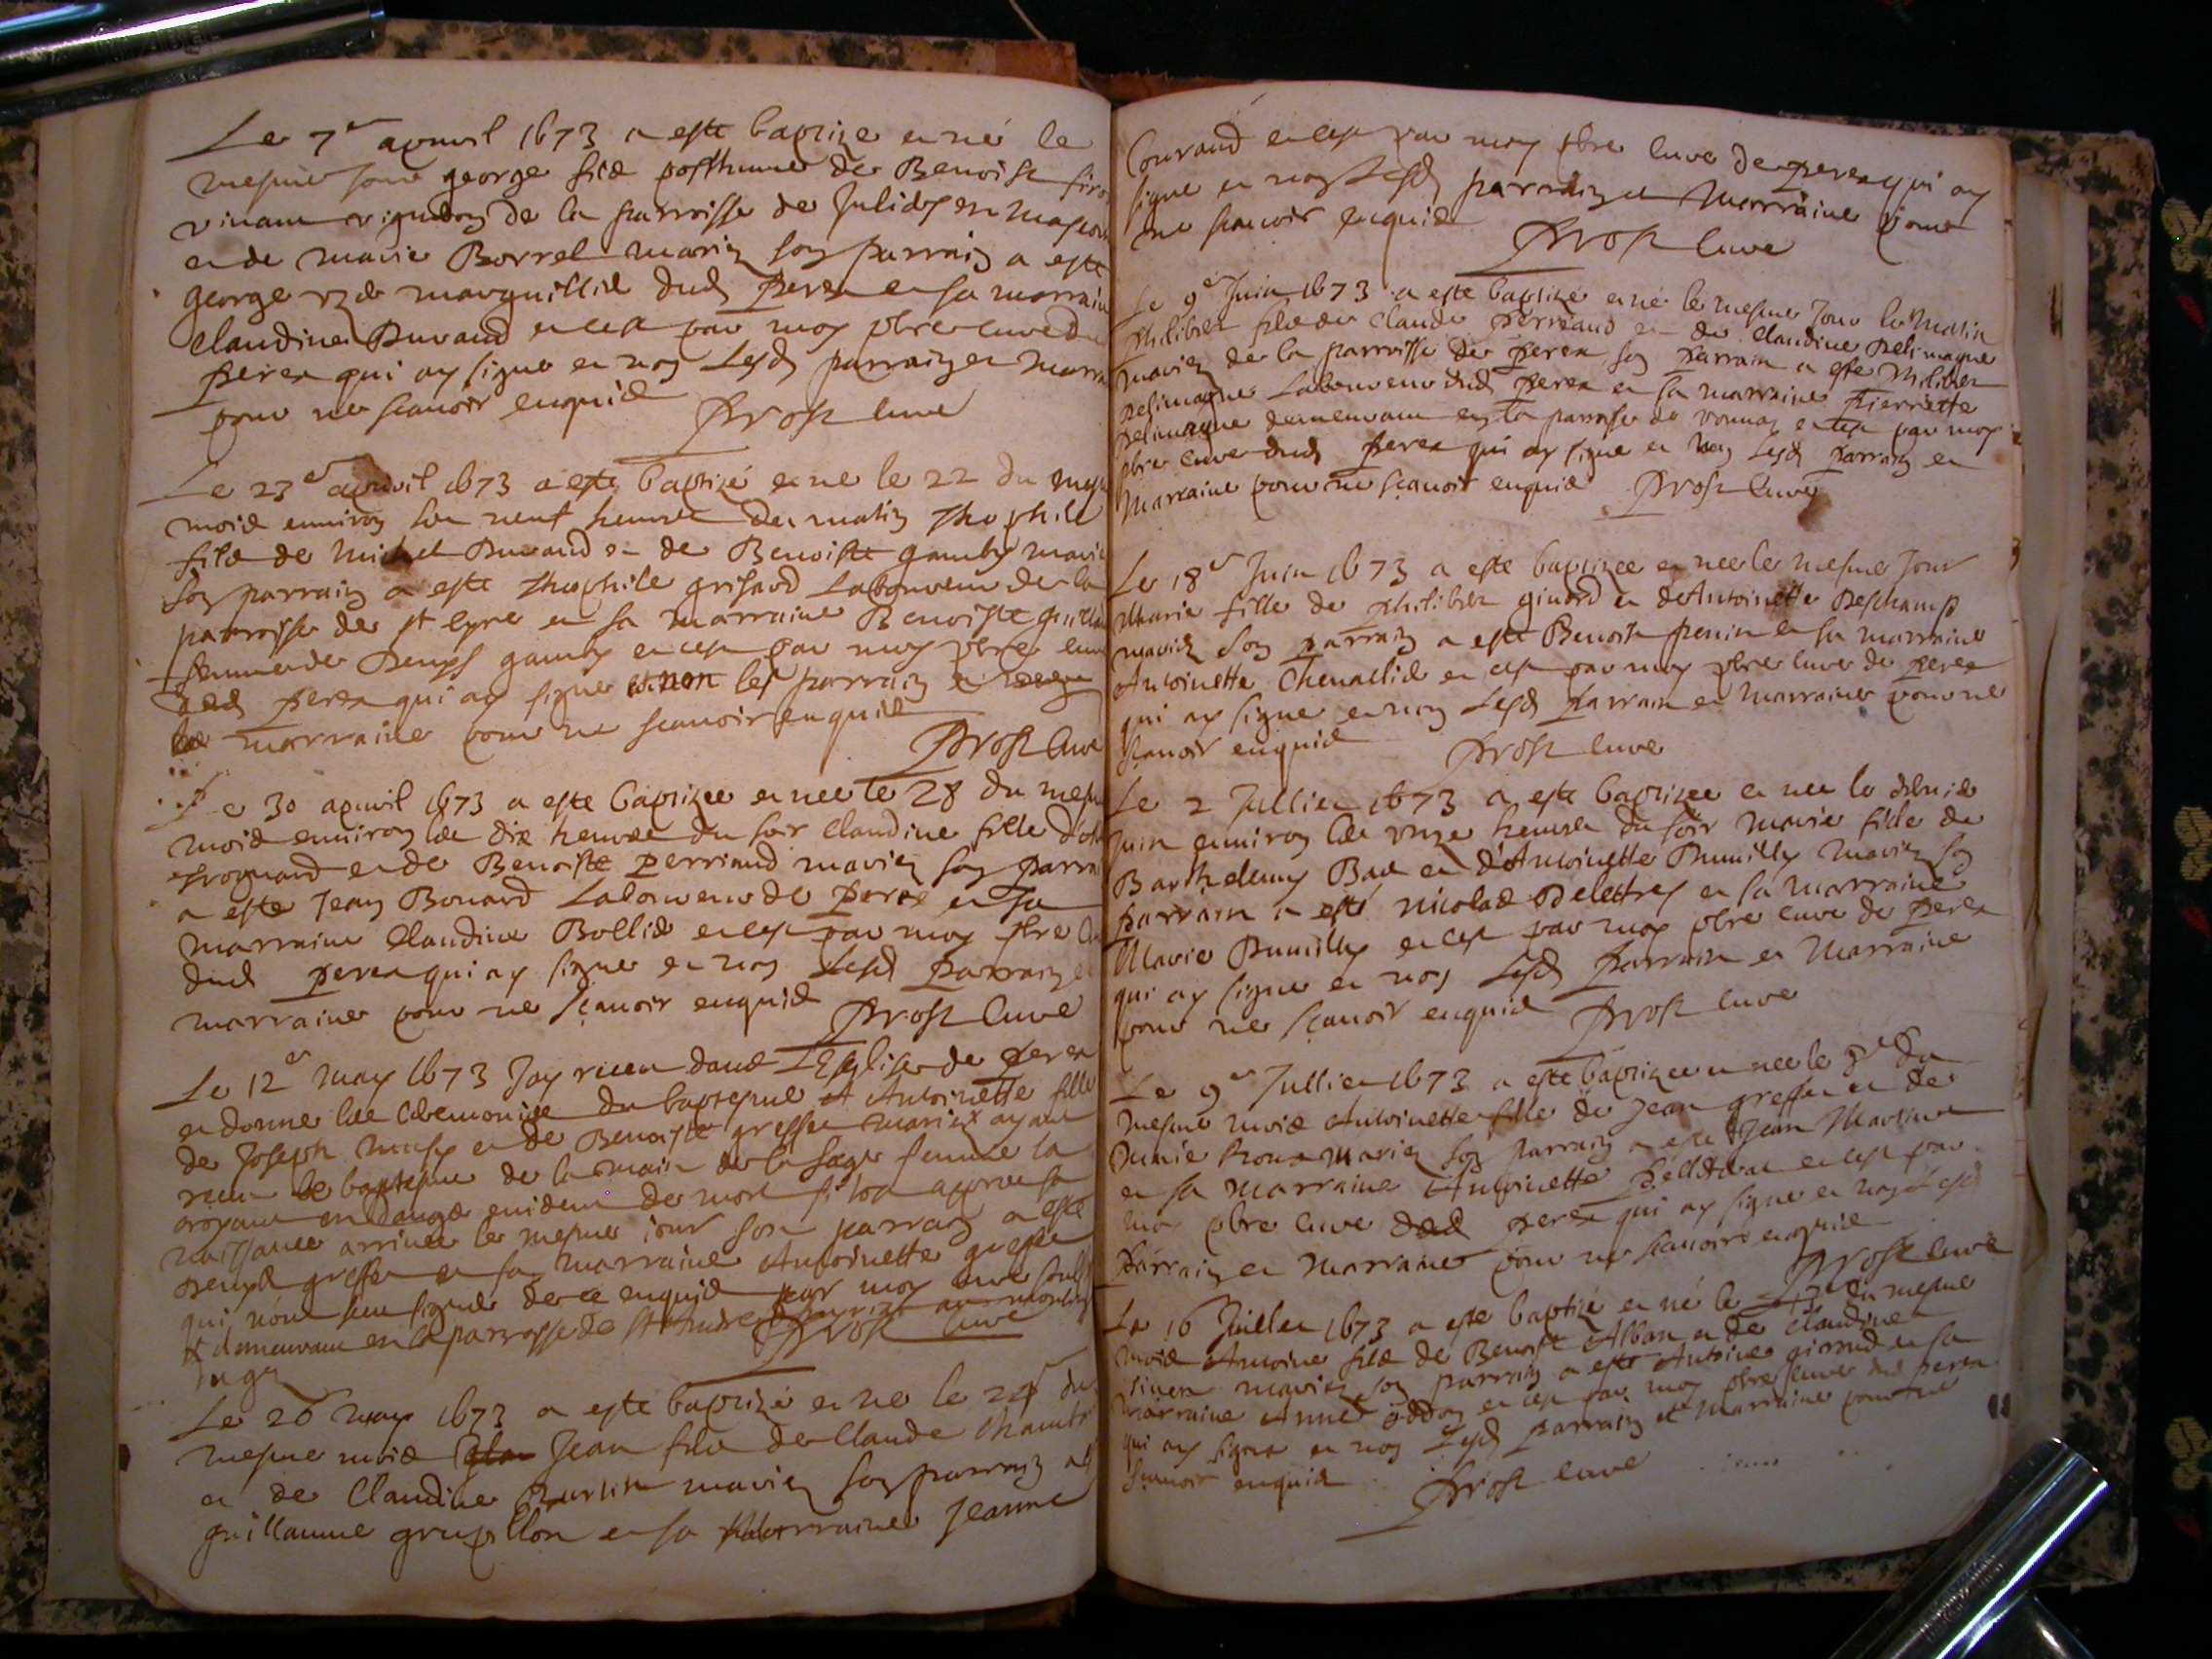 Le 7e apuril 1673 a este baptize et né le
mesme jour george filz posthume de Benoist
vivant vigneron de la parroisse de Julidy en
et de marie Borrel mariez son parrain a este
george marguillié dud perex et sa marraine
claudine Durand et ce par moy pbre curé du
perex qui ay signe et non lesd parrain et marra
pour ne scauoir enquis Prost curé
Le 23e apuril 1673 a este baptizé et ne le 22 du mesme
mois enuiron les neuf heures du matin Theophile
filz de Michel Durand et de Benoiste gamby mariez
son parrain a este Theophile grisard Laboureur de la
parroisse de st Cyre et sa marraine Benoiste
femme de Denys gamby et ce par moy pbre curé
dud perex qui ay signe et non les parrain et
la marraine pour ne scauoir enquis
Prost curé
Le 30 apuril 1673 a este baptizee et nee le 28 du mesme
mois enuiron les dix heures du soir Claudine fille
et de Benoiste perriaud mariez son parrain
a este Jean Bonard Laboureur de perex et sa
marraine Claudine Bollié et ce par moy pbre
dud perex qui ay signe et non lesd parrain et
marraine pour ne scauoir enquis Prost curé
Le 12e may 1673 Jay receu dans L'Eglise de perex
et donne les ceremonies du baptesme A Antoinette fille
de Joseph et de Benoiste greffet mariez ayant
receu le baptesme de la main de la sage femme la
croyant en danger euident de mort si tost apres sa
naissance arriuee le mesme iour son parrain a este
Denys greffet et sa marraine Antoinette greffet
qui n'ont sceu signer de ce enquis par moy curé
demeurant en la parroisse de st André
Prost curé
Le 26 may 1673 a este baptizé et ne le 24e du
mesme mois Jean filz de Claude
et de Claudine mariez son parrain a este
guillaume grupillon et sa Marraine Jeanne
Couraud et ce par moy pbre curé de perex qui ay
signe et non lesd parrain et Marraine pour
ne scauoir enquis Prost curé
Le 9e Juin 1673 a este baptizé et né le mesme Jour le Matin
philibert filz de Claude perreaud et de Claudine Delimagne
mariez de la parroisse de perex son parrain a este philibert
Delimagne Laboureur dud perex et sa marraine pierrette
Delimagne demeurant en la parroisse de vonnas et ce par moy
pbre curé dud perex qui ay signe et non lesd parrain et
Marraine pour ne scauoir enquis Prost curé
Le 18e Juin 1673 a este baptizee et nee le mesme Jour
Marie fille de philibert girard et de Antoinette Deschamp
mariez son parrain a este Benoist perrin et sa marraine
Antoinette Cheuallié et ce par moy pbre curé de perex
qui ay signe et non lesd parrain et marraine pour ne
scauoir enquis Prost curé
Le 2 Jullier 1673 a este baptizee et nee le dernié
juin enuiron les vnze heures du soir marie fille de
Barthelemy et d'Antoinette Dumilly mariez son
parrain a esté nicolas et sa marraine
Marie Dumilly et ce par moy pbre curé de perex
qui ay signe et non lesd parrain et Marraine
pour ne scauoir enquis Prost curé
Le 9e Jullier 1673 a este baptizee et nee le 8e du
mesme mois Antoinette fille de Jean greffet et de
mariez son parrain a este Jean
et sa marraine Antoinette et ce par
moy pbre curé dud perex qui ay signe et non lesd
parrain et marraine pour ne scauoir enquis
Prost curé
Le 16 Juillet 1673 a este baptizé et né le du mesme
mois Antoine filz de Benoist Alban et de claudine
mariez son parrain a este Antoine giraud et sa
marraine Anne oddon et ce par moy pbre curé dud perex
qui ay signe et non lesd parrain et marraine pour ne
scauoir enquis Prost curé